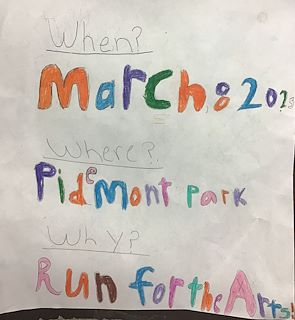 When?
March 8
Where?
PideMont Park
Why?
Run for the Arts!